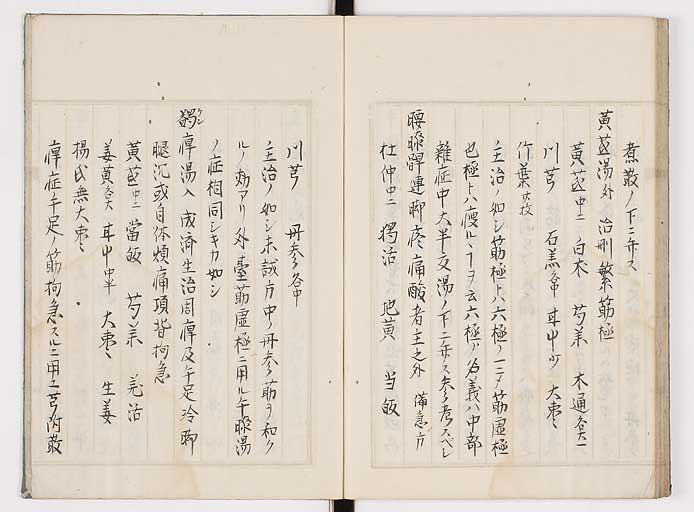 煮散ノ下ニ弁ス
黄芪湯外 治刪繁筋極
黄芪中二 白木 芍薬 木通各大一
川芎 石羔各中 甘中少 大棗ミ
竹葉 六枚
主治ノ如シ筋極トハ六極ノ一ニメ筋虚極
也極トハ疲ルヽ ヿヲ云六極ノ名義ハ中部
雑症中大半夏湯ノ下ニ弁ス参考スベシ
腰髖髀連脚疼痛酸者主之外 備急方
杜仲中二 獨活 地黄 当皈
川芎 丹参各中
主治ノ如シ未試方中ノ丹参筋ヲ和ク
ルノ効アリ外臺筋虚極ニ用ル牛膝湯
ノ症相同シキカ如シ
蠲痺湯入 成済生治周痺及手足冷脚
腿沉或自体煩痛項背拘急
黄芪中二 當皈 芍薬 羌活
姜黄各大 甘中半 大棗ミ 生姜
楊氏無大棗ミ
痺症手足ノ筋拘急スルニ用ユ芎附散